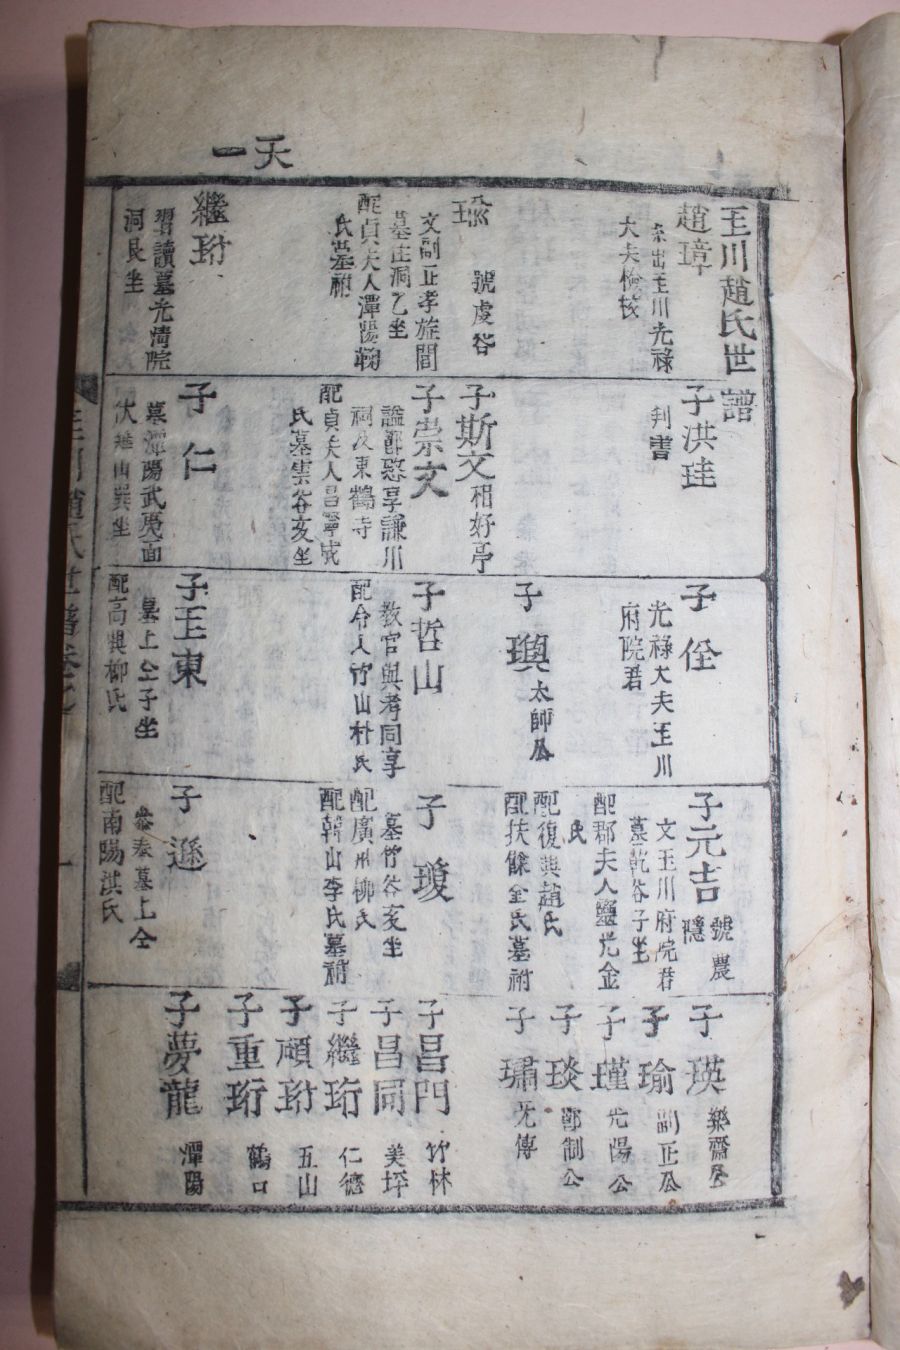 天一
玉川趙氏世譜
趙璋
系出玉川光祿
大夫檢校
子洪珪
判書
子佺
光祿大夫玉川
府院君
子元吉
號農
隱
文玉川府院君
墓乾谷子坐
配郡夫人鹽光金
氏
配復興趙氏
配扶餘金氏墓祔
子瑛
樂齋公
子瑜
副正公
子瑾
光陽公
子琰
都制公
子璛
无傳
瑜
號虔谷
文副正孝旌閭
墓庄洞乙坐
配貞夫人潭陽鞠
氏墓祔
子斯文
相好亭
子崇文
謚節愍享謙川
祠及東鶴寺
配貞夫人昌寧成
氏墓雲谷亥坐
子璵
太師公
子哲山
教官與考同享
配令人竹山朴氏
子瓊
墓竹谷亥坐
配廣州柳氏
配韓山李氏墓祔
子昌門
竹林
子昌同
美坪
子繼珩
仁德
子頑珩
五山
子重珩
鶴口
繼珩
習讀墓光淸院
洞艮坐
子仁
墓潭陽武夷面
山巽坐
子玉東
墓上仝子坐
配高興柳氏
子遜
參奉墓上仝
配南陽洪氏
子夢龍
潭陽
玉川趙氏世譜卷之一